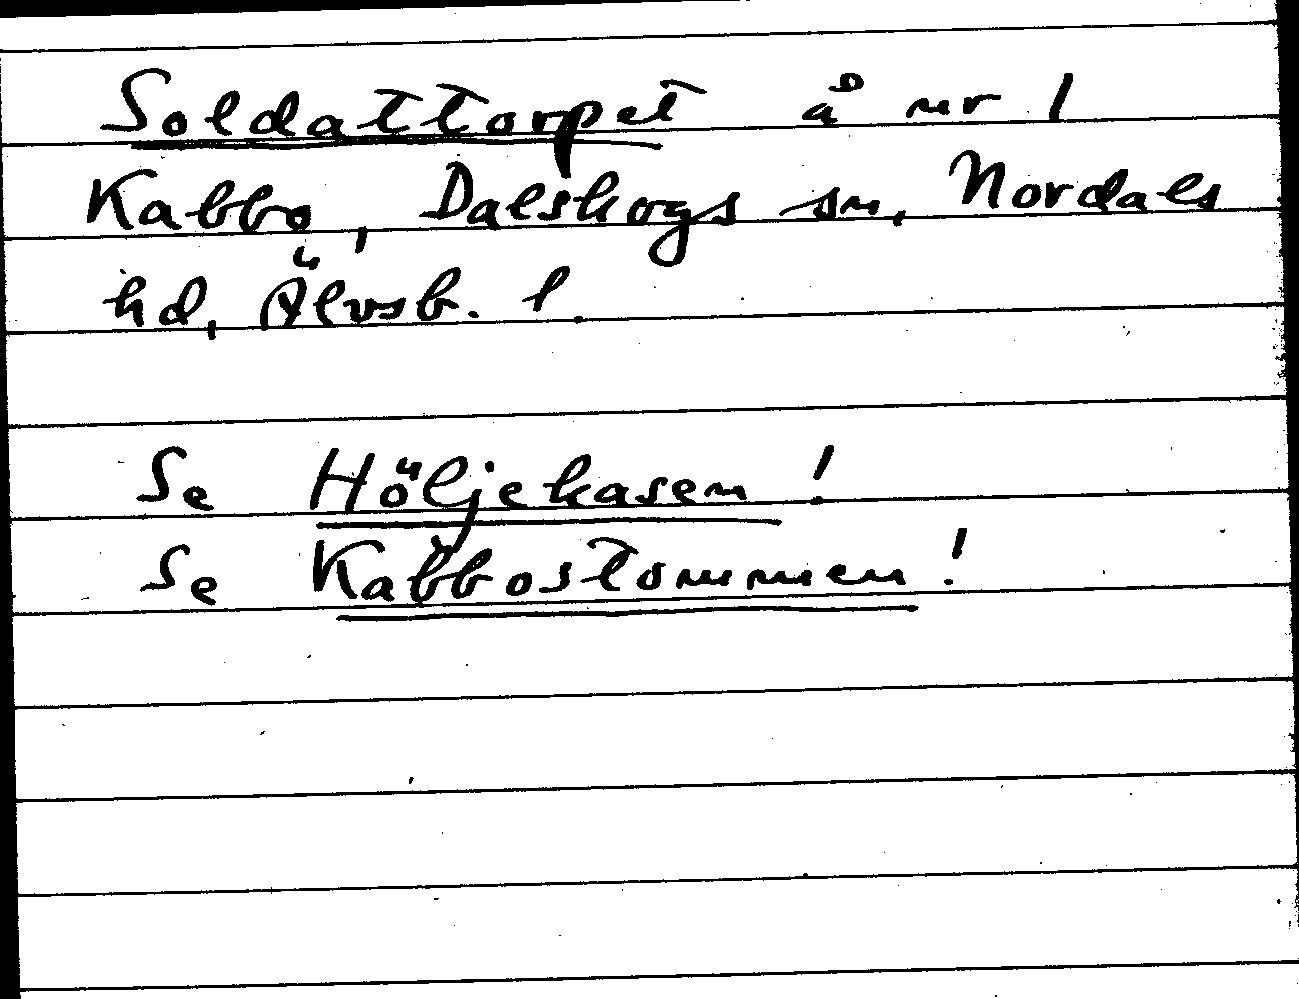 Soldattorpet å nr 1
Kabbo, Dalskogs sn, Nordals
hd, Älvsb. l.
Se Höljekasen!
Se Kabbostommen!